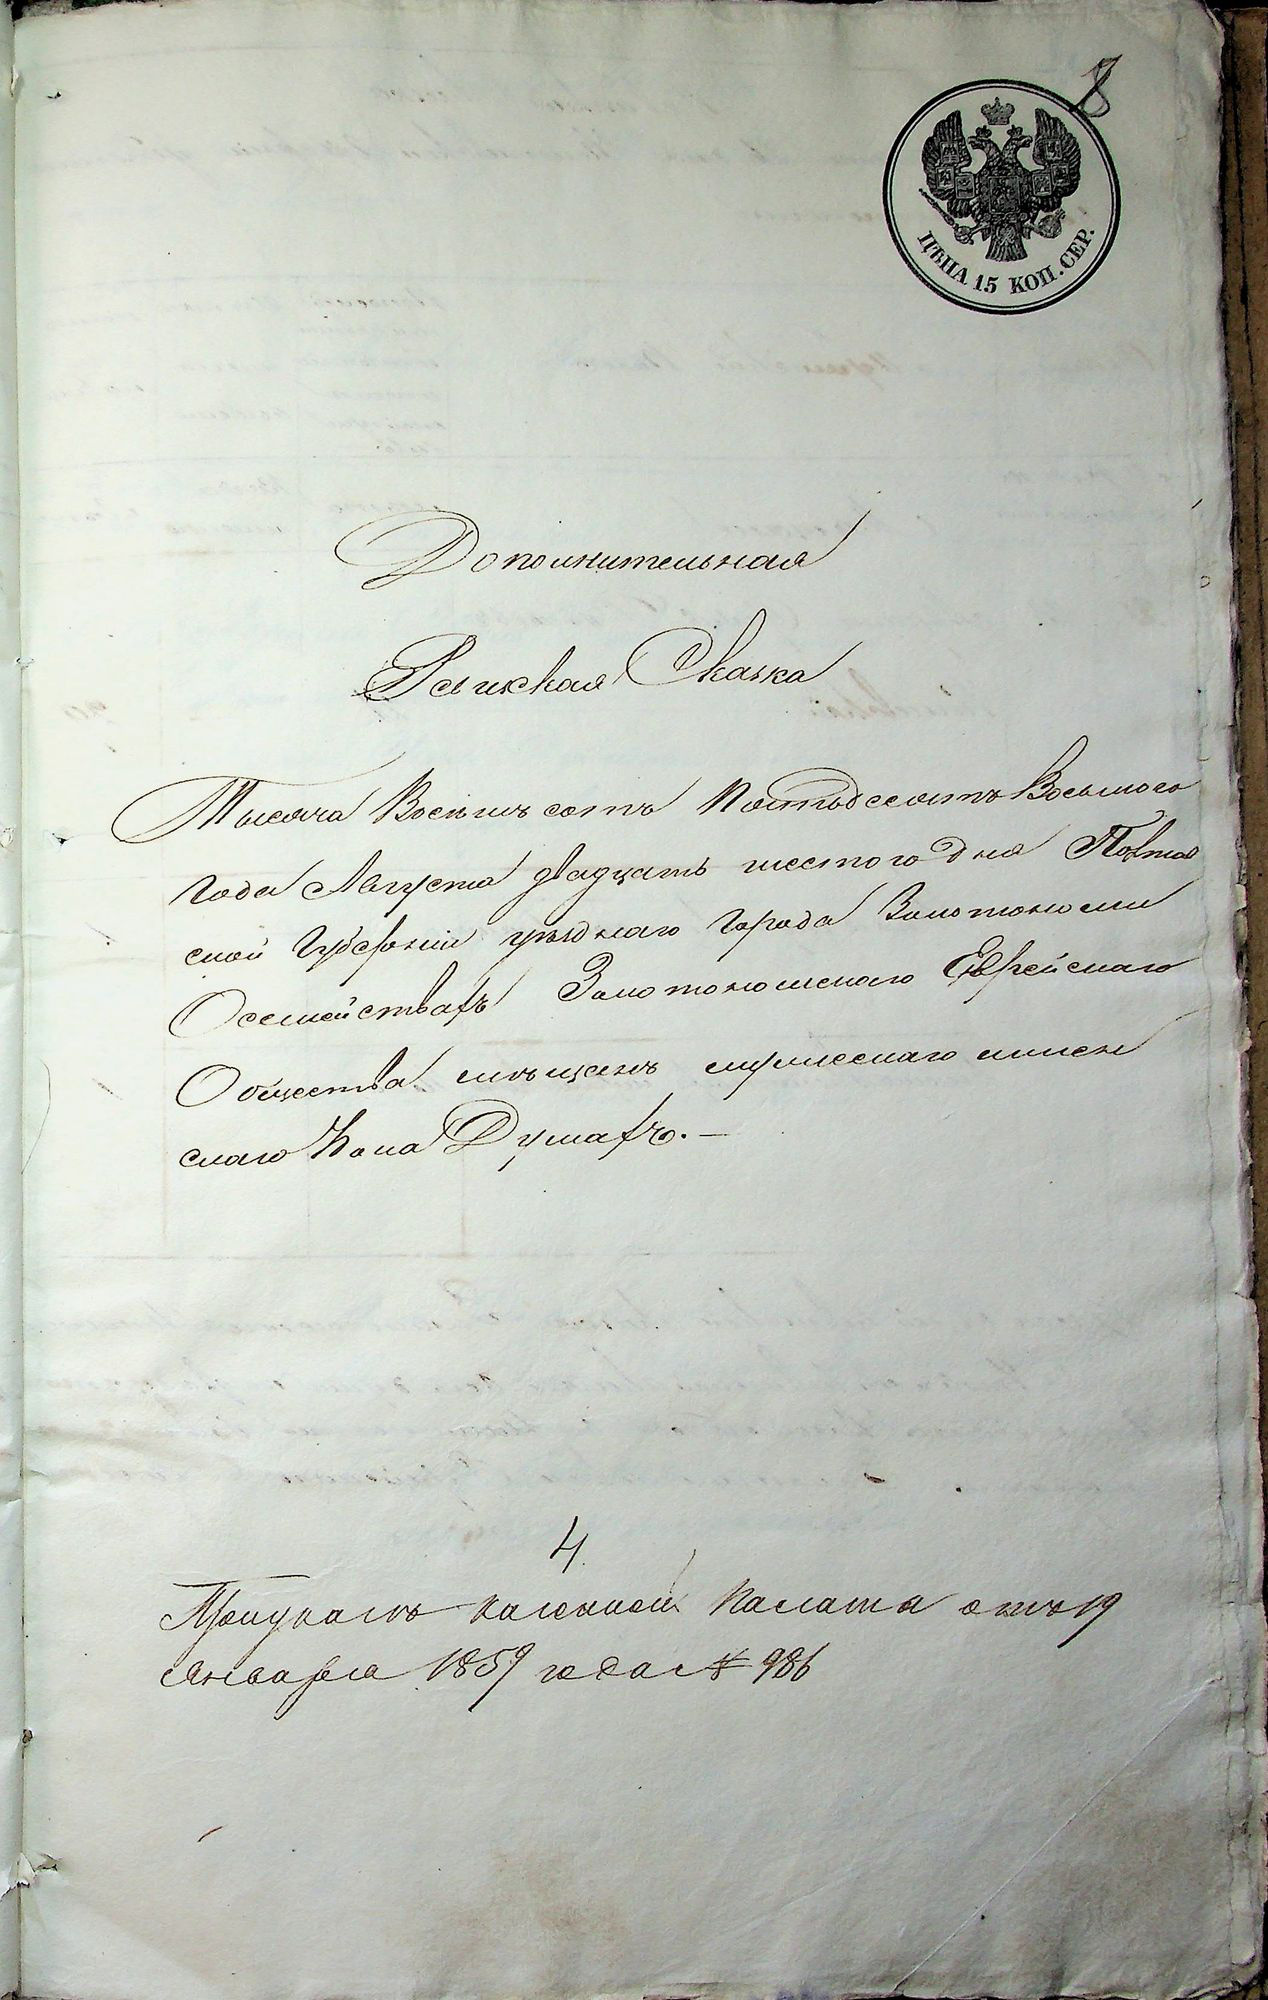 8
ЦѢНА 15 КОП. СЕР.
Дополнительная
Ревижская Сказка
Тысяча Восемь сотъ Пятьдесятъ Восьмого
года Августа двадцать шестого дня Полтав
ской Губерніи уѣзднаго Города Золотоноши
О семействахъ Золотоношскаго Еврейскаго
Общества мѣщанъ
скаго
4.
Казенной Палаты отъ 19
Января 1859 года № 986